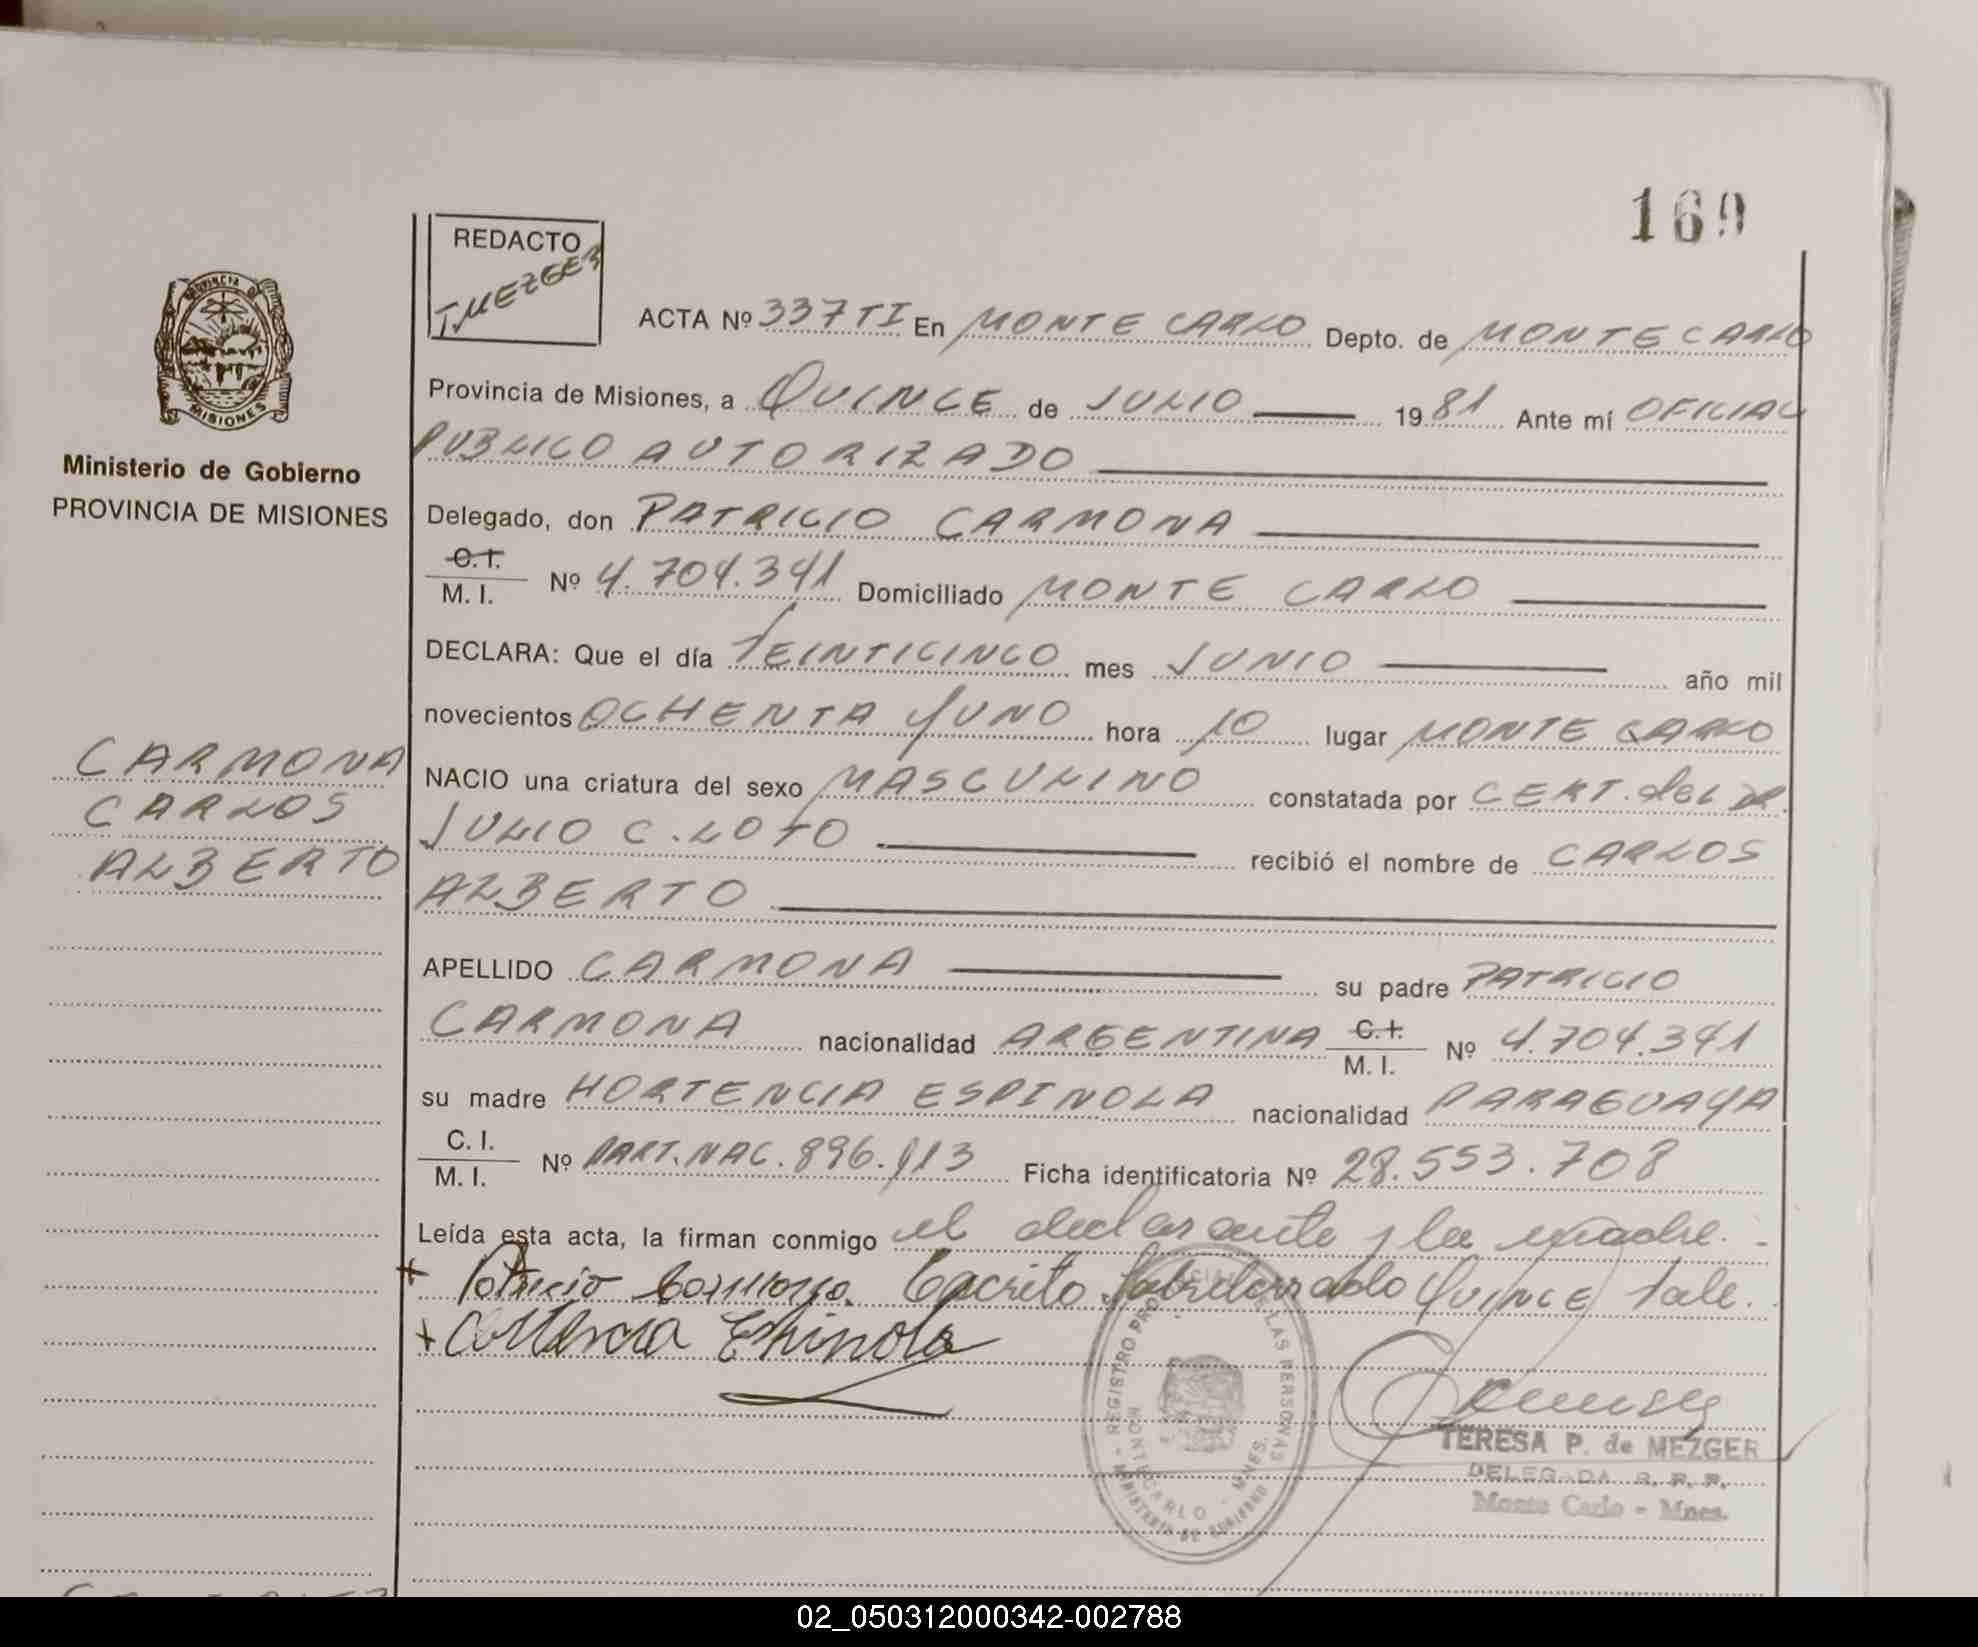 169
REDACTO
T.MEZGER
ACTA Nº 337 TI En MONTE CARLO Depto. de MONTECARLO
Provincia de Misiones, a QUINCE de JULIO 1981 Ante mí OFICIAL
PUBLICO AUTORIZADO
PROVINCIA DE
MISIONES
Ministerio de Gobierno
PROVINCIA DE MISIONES
Delegado, don PATRICIO CARMONA
C.I.
M. I. Nº 4.704.341 Domiciliado MONTE CARLO
DECLARA: Que el día VEINTICINCO mes JUNIO año mil
novecientos OCHENTA Y UNO hora 10 lugar MONTE CARLO
CARMONA
CARLOS
ALBERTO
NACIO una criatura del sexo MASCULINO constatada por CERT. del DR.
JULIO C. LOTO recibió el nombre de CARLOS
ALBERTO
APELLIDO CARMONA su padre PATRICIO
CARMONA nacionalidad ARGENTINA C.I. M. I. Nº 4.704.341
su madre HORTENCIA ESPINOLA nacionalidad PARAGUAYA
C. I.
M. I. Nº PART. NAC. 896.113 Ficha identificatoria Nº 28.553.708
Leída esta acta, la firman conmigo el declarante y la madre.
+ Patricio Carmona. Escrito sobreborrado QUINCE Vale.
+ Espinola
REGISTRO PROVINCIAL DE LAS PERSONAS
MONTECARLO - MNES.
MINISTERIO DE GOBIERNO
TERESA P. de MEZGER
DELEGADA R. P. P.
Monte Carlo - Mnes.
02_050312000342-002788